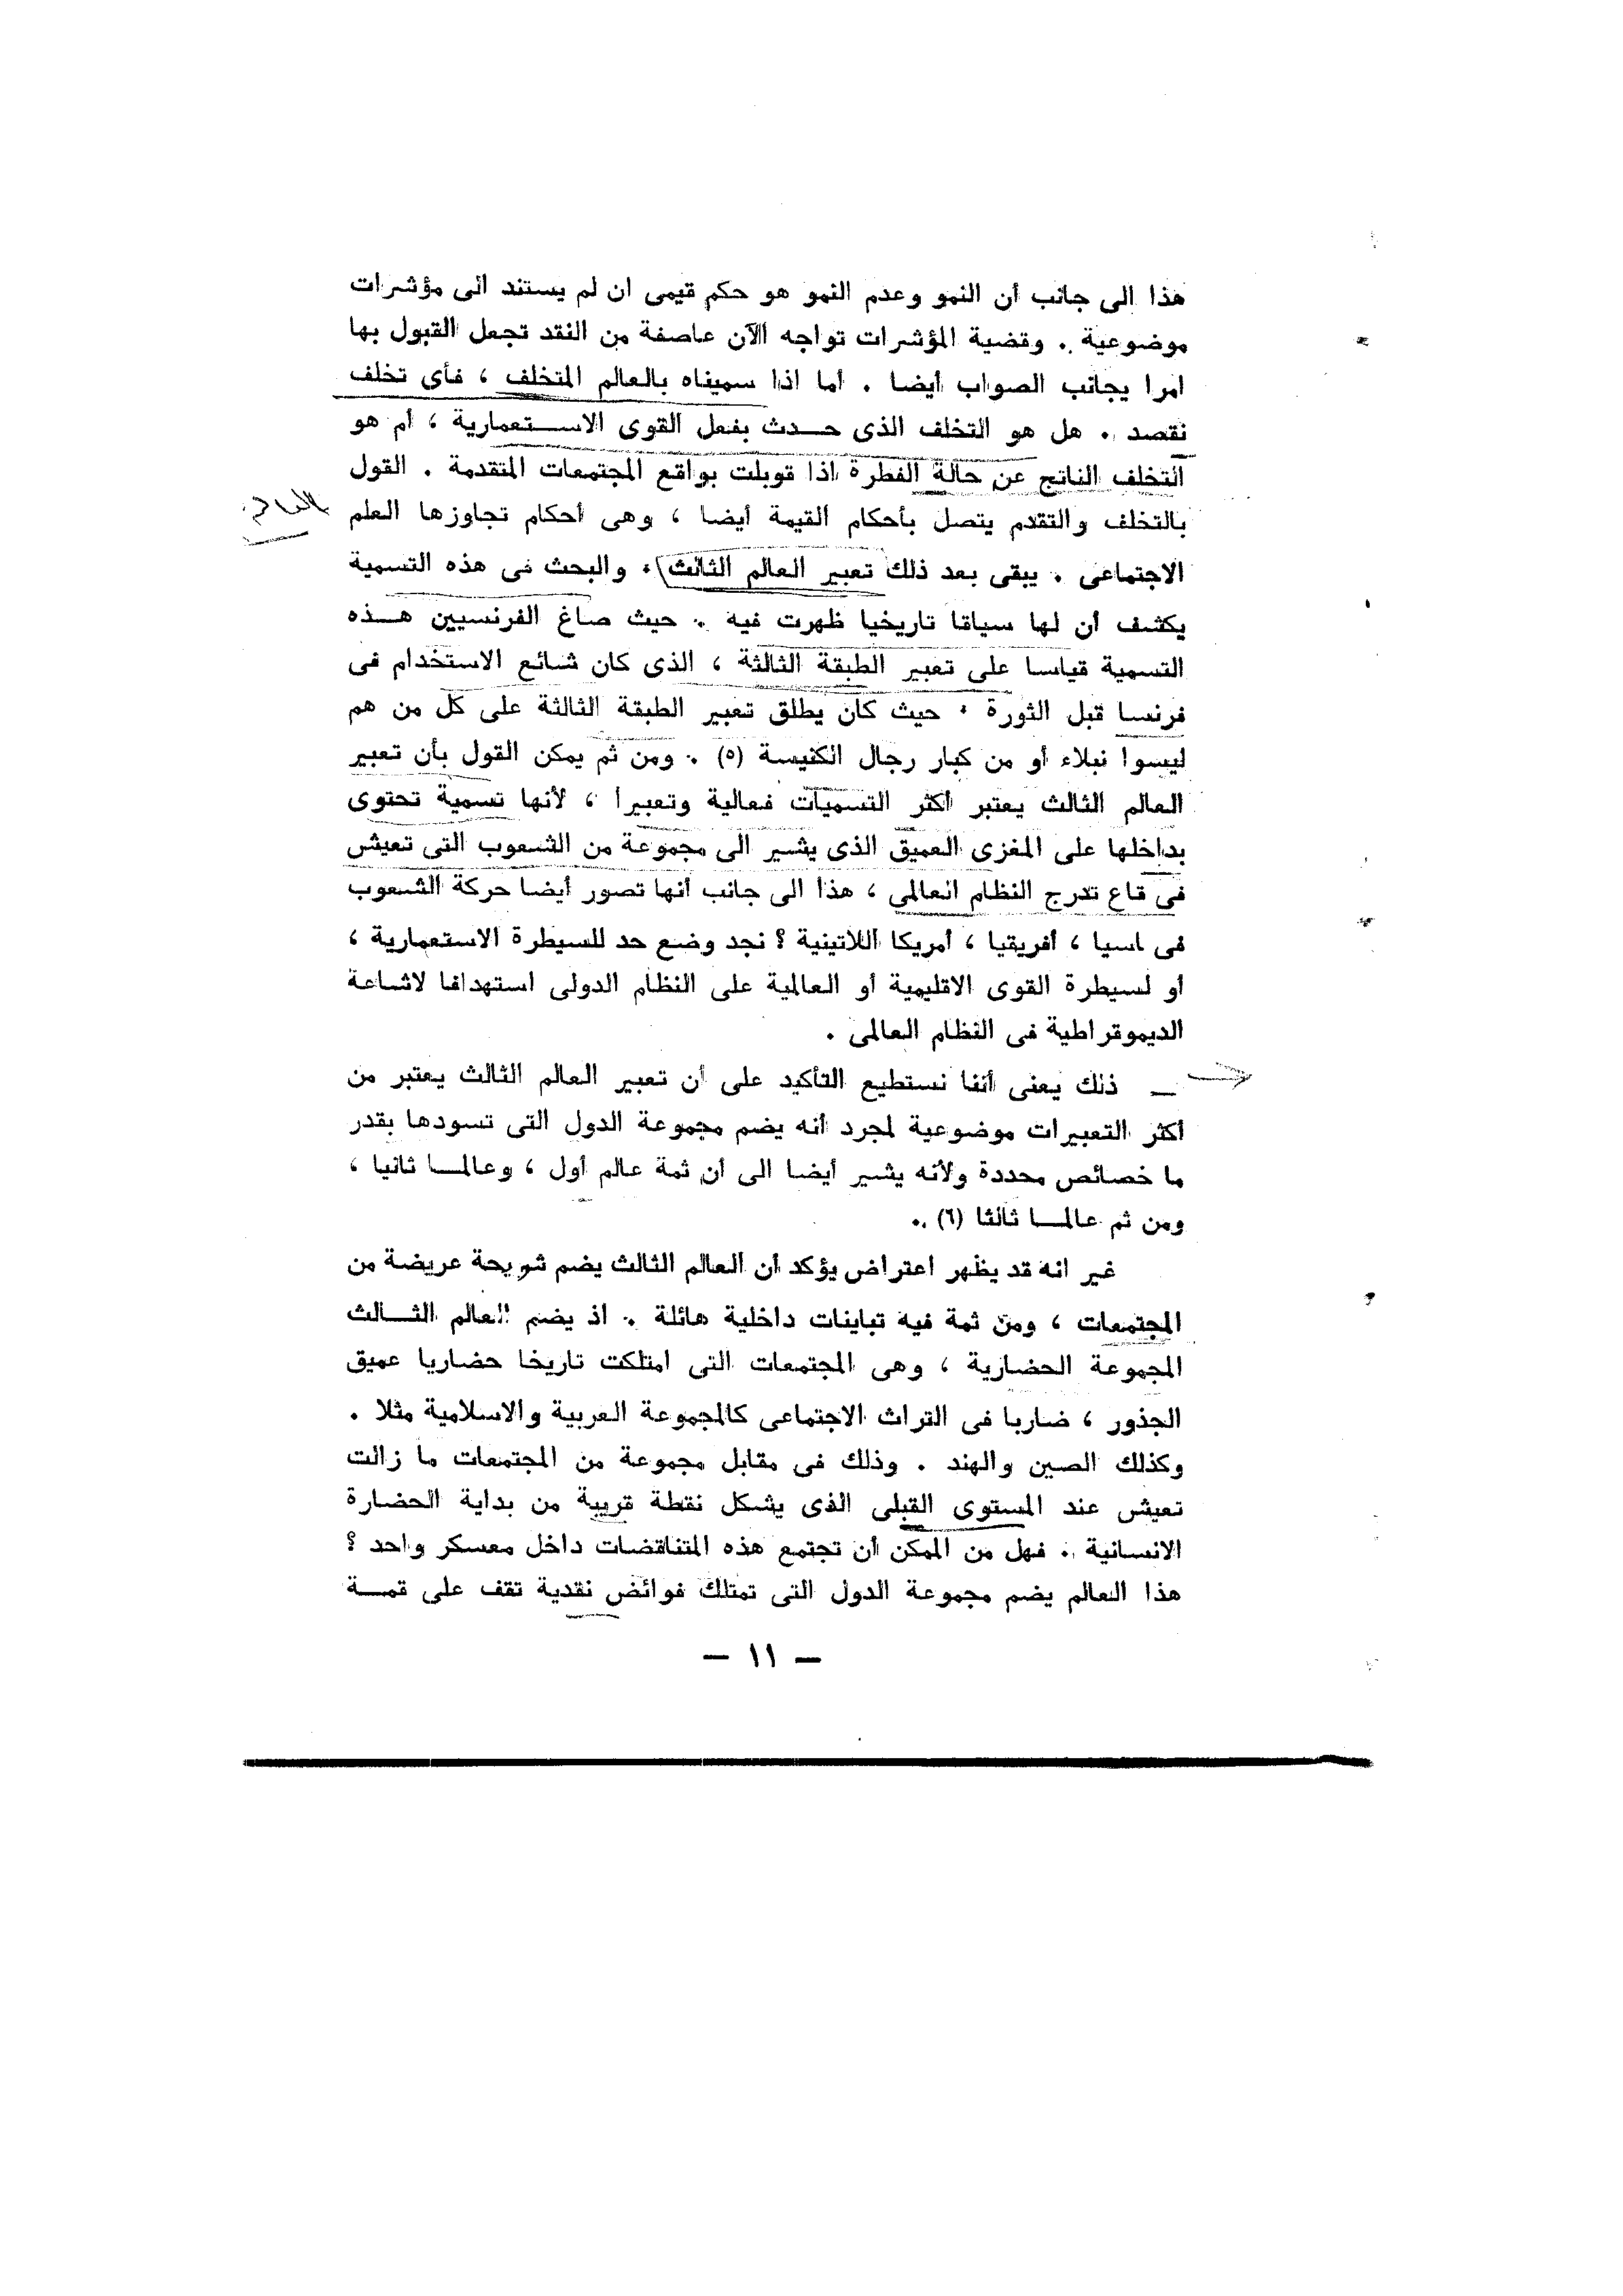 هذا الى جانب أن النمو وعدم النمو هو حكم قيمى ان لم يستند الى مؤشرات
موضوعية . وقضية المؤشرات تواجه الآن عاصفة من النقد تجعل القبول بها
امرا يجانب الصواب أيضا . أما اذا سميناه بالعالم المتخلف ، فأى تخلف
نقصد . هل هو التخلف الذى حـــدث بفعل القوى الاســـتعمارية ، أم هو
التخلف الناتج عن حالة الفطرة اذا قوبلت بواقع المجتمعات المتقدمة . القول
بالتخلف والتقدم يتصل بأحكام القيمة أيضا ، وهى أحكام تجاوزها العلم
الاجتماعى . يبقى بعد ذلك تعبير العالم الثالث . والبحث فى هذه التسمية
يكشف أن لها سياقا تاريخيا ظهرت فيه . حيث صاغ الفرنسيين هـــذه
التسمية قياسا على تعبير الطبقة الثالثة ، الذى كان شائع الاستخدام فى
فرنسا قبل الثورة . حيث كان يطلق تعبير الطبقة الثالثة على كل من هم
ليسوا نبلاء أو من كبار رجال الكنيسة (٥) . ومن ثم يمكن القول بأن تعبير
العالم الثالث يعتبر أكثر التسميات فعالية وتعبيرا ، لأنها تسمية تحتوى
بداخلها على المغزى العميق الذى يشير الى مجموعة من الشعوب التى تعيش
فى قاع تدرج النظام العالمى ، هذا الى جانب أنها تصور أيضا حركة الشعوب
فى اسيا ، أفريقيا ، أمريكا اللاتينية ؟ نجد وضع حد للسيطرة الاستعمارية ،
أو لسيطرة القوى الاقليمية أو العالمية على النظام الدولى استهدافا لاشاعة
الديموقراطية فى النظام العالمى .
— ذلك يعنى أننا نستطيع التأكيد على أن تعبير العالم الثالث يعتبر من
أكثر التعبيرات موضوعية لمجرد أنه يضم مجموعة الدول التى تسودها بقدر
ما خصائص محددة ولأنه يشير أيضا الى أن ثمة عالم أول ، وعالمـــا ثانيا ،
ومن ثم عالمـــا ثالثا (٦) .
غير انه قد يظهر اعتراض يؤكد أن العالم الثالث يضم شريحة عريضة من
المجتمعات ، ومن ثمة فيه تباينات داخلية هائلة . اذ يضم العالم الثـــالث
المجموعة الحضارية ، وهى المجتمعات التى امتلكت تاريخا حضاريا عميق
الجذور ، ضاربا فى التراث الاجتماعى كالمجموعة العربية والاسلامية مثلا .
وكذلك الصين والهند . وذلك فى مقابل مجموعة من المجتمعات ما زالت
تعيش عند المستوى القبلى الذى يشكل نقطة قريبة من بداية الحضارة
الانسانية . فهل من الممكن أن تجتمع هذه المتناقضات داخل معسكر واحد ؟
هذا العالم يضم مجموعة الدول التى تمتلك فوائض نقدية تقف على قمـــة
— ١١ —